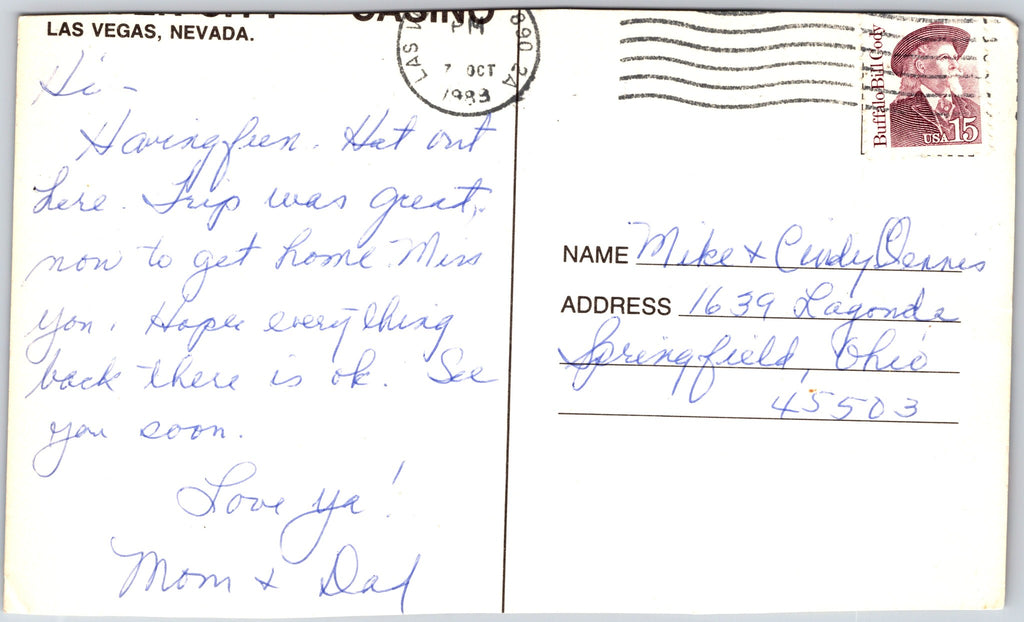 CITY CASINO
LAS VEGAS, NEVADA.
LAS V
PM
7 OCT
1989
890 24
Buffalo Bill Cody
USA 15
Hi -
Having fun. Hot out
here. Trip was great,
now to get home. Miss
you. Hope everything
back there is ok. See
you soon.
Love ya!
Mom + Dad
NAME Mike + Cindy Dennis
ADDRESS 1639 Lagonda
Springfield, Ohio
45503